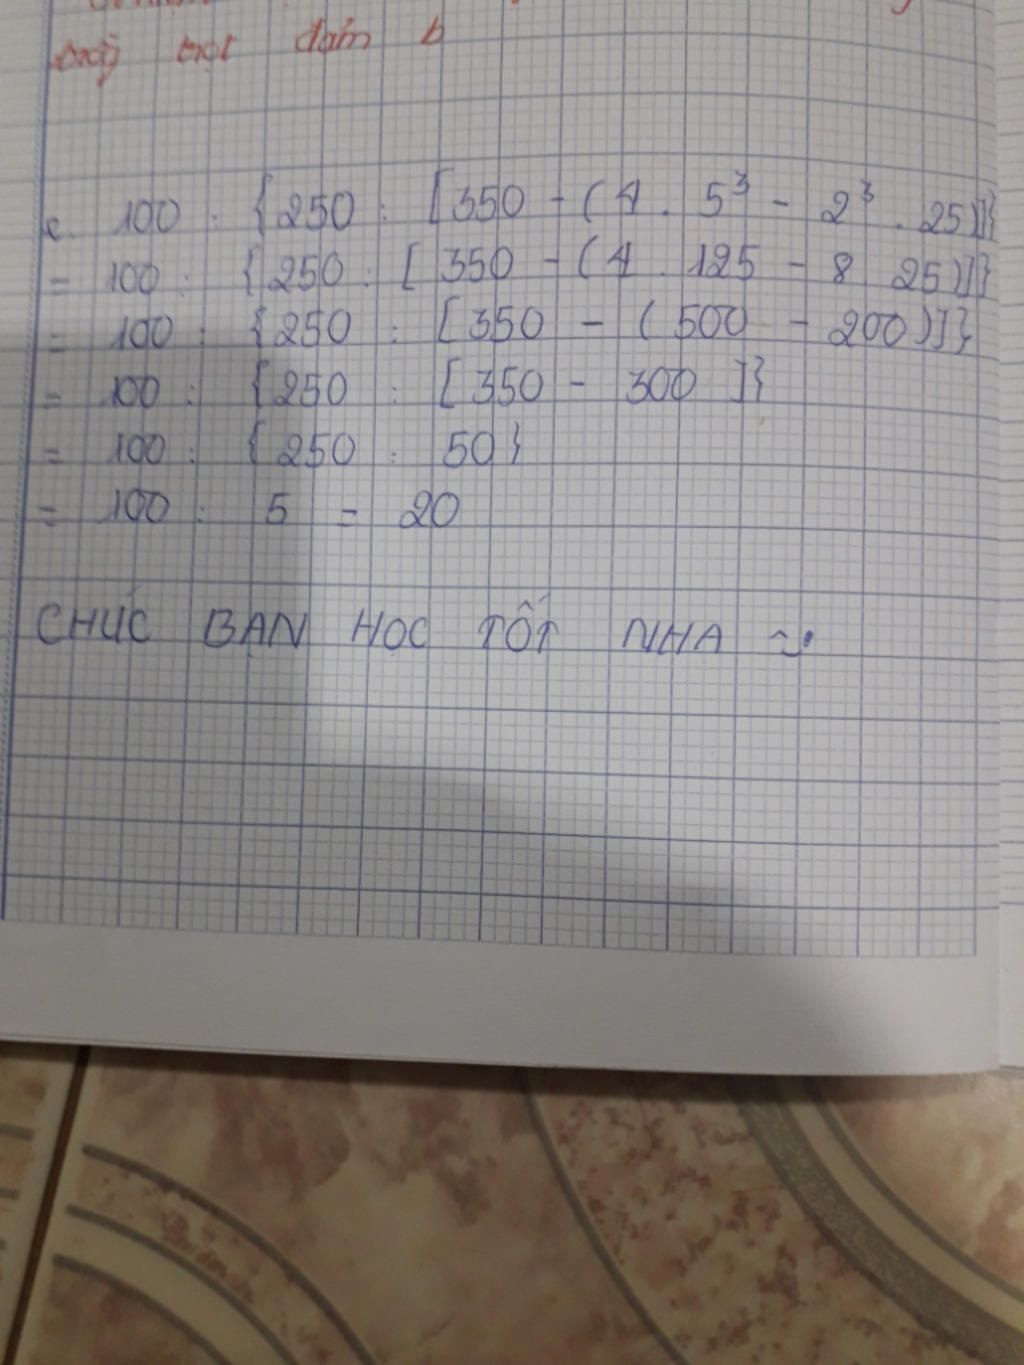 một đám b
c. 100 : {250 : [350 - (4 . 5³ - 2³ . 25)]}
= 100 : {250 : [350 - (4 . 125 - 8 25)]}
= 100 : {250 : [350 - (500 - 200)]}
= 100 : {250 : [350 - 300 ]}
= 100 : {250 : 50}
= 100 : 5 = 20
CHÚC BẠN HỌC TỐT NHA